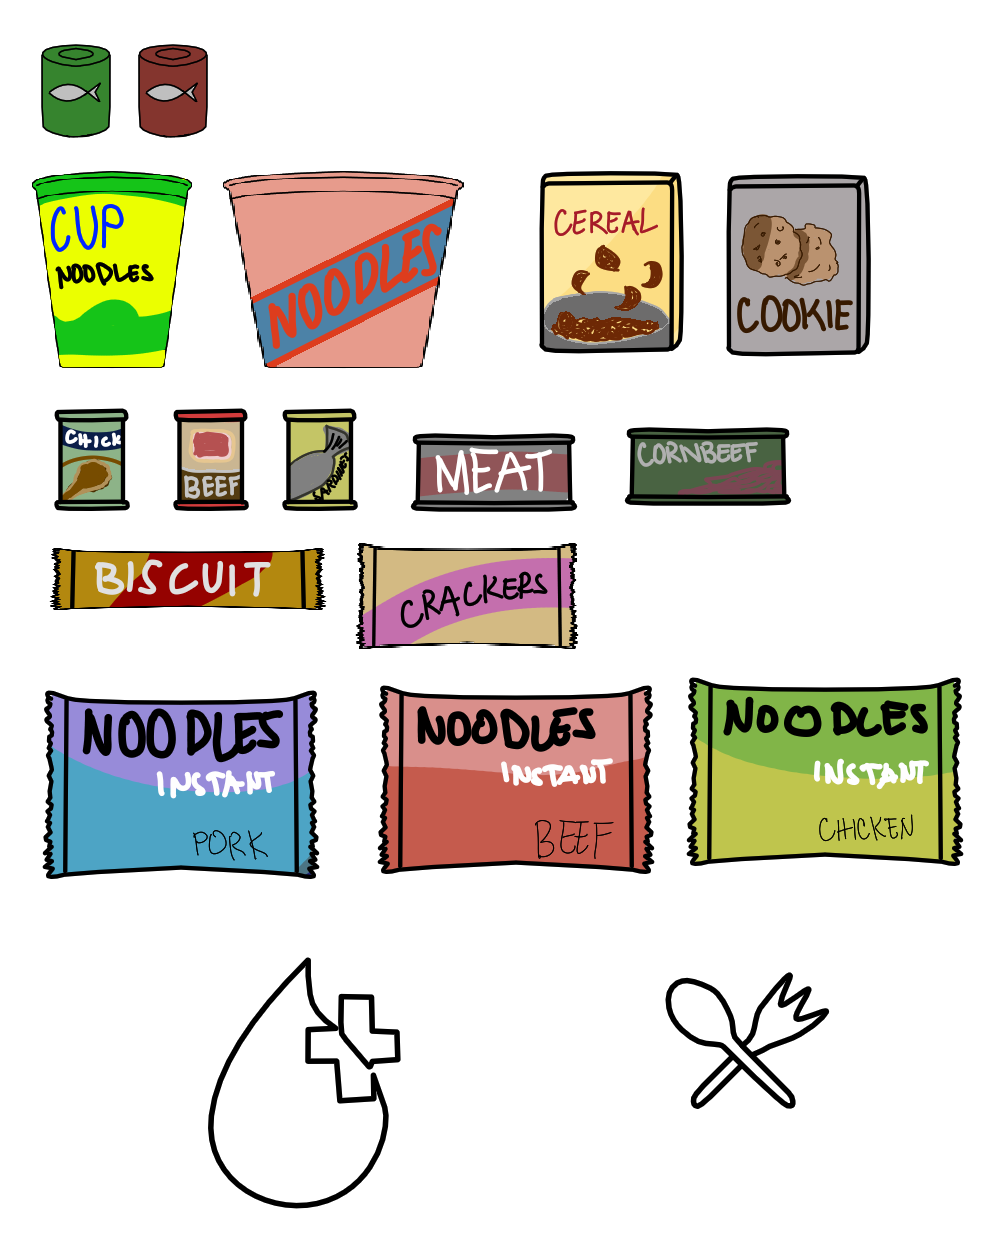 CUP
NOODLES
NOODLES
CEREAL
COOKIE
CHICK
BEEF
SARDINES
MEAT
CORNBEEF
BISCUIT
CRACKERS
NOODLES
INSTANT
PORK
NOODLES
INSTANT
BEEF
NOODLES
INSTANT
CHICKEN